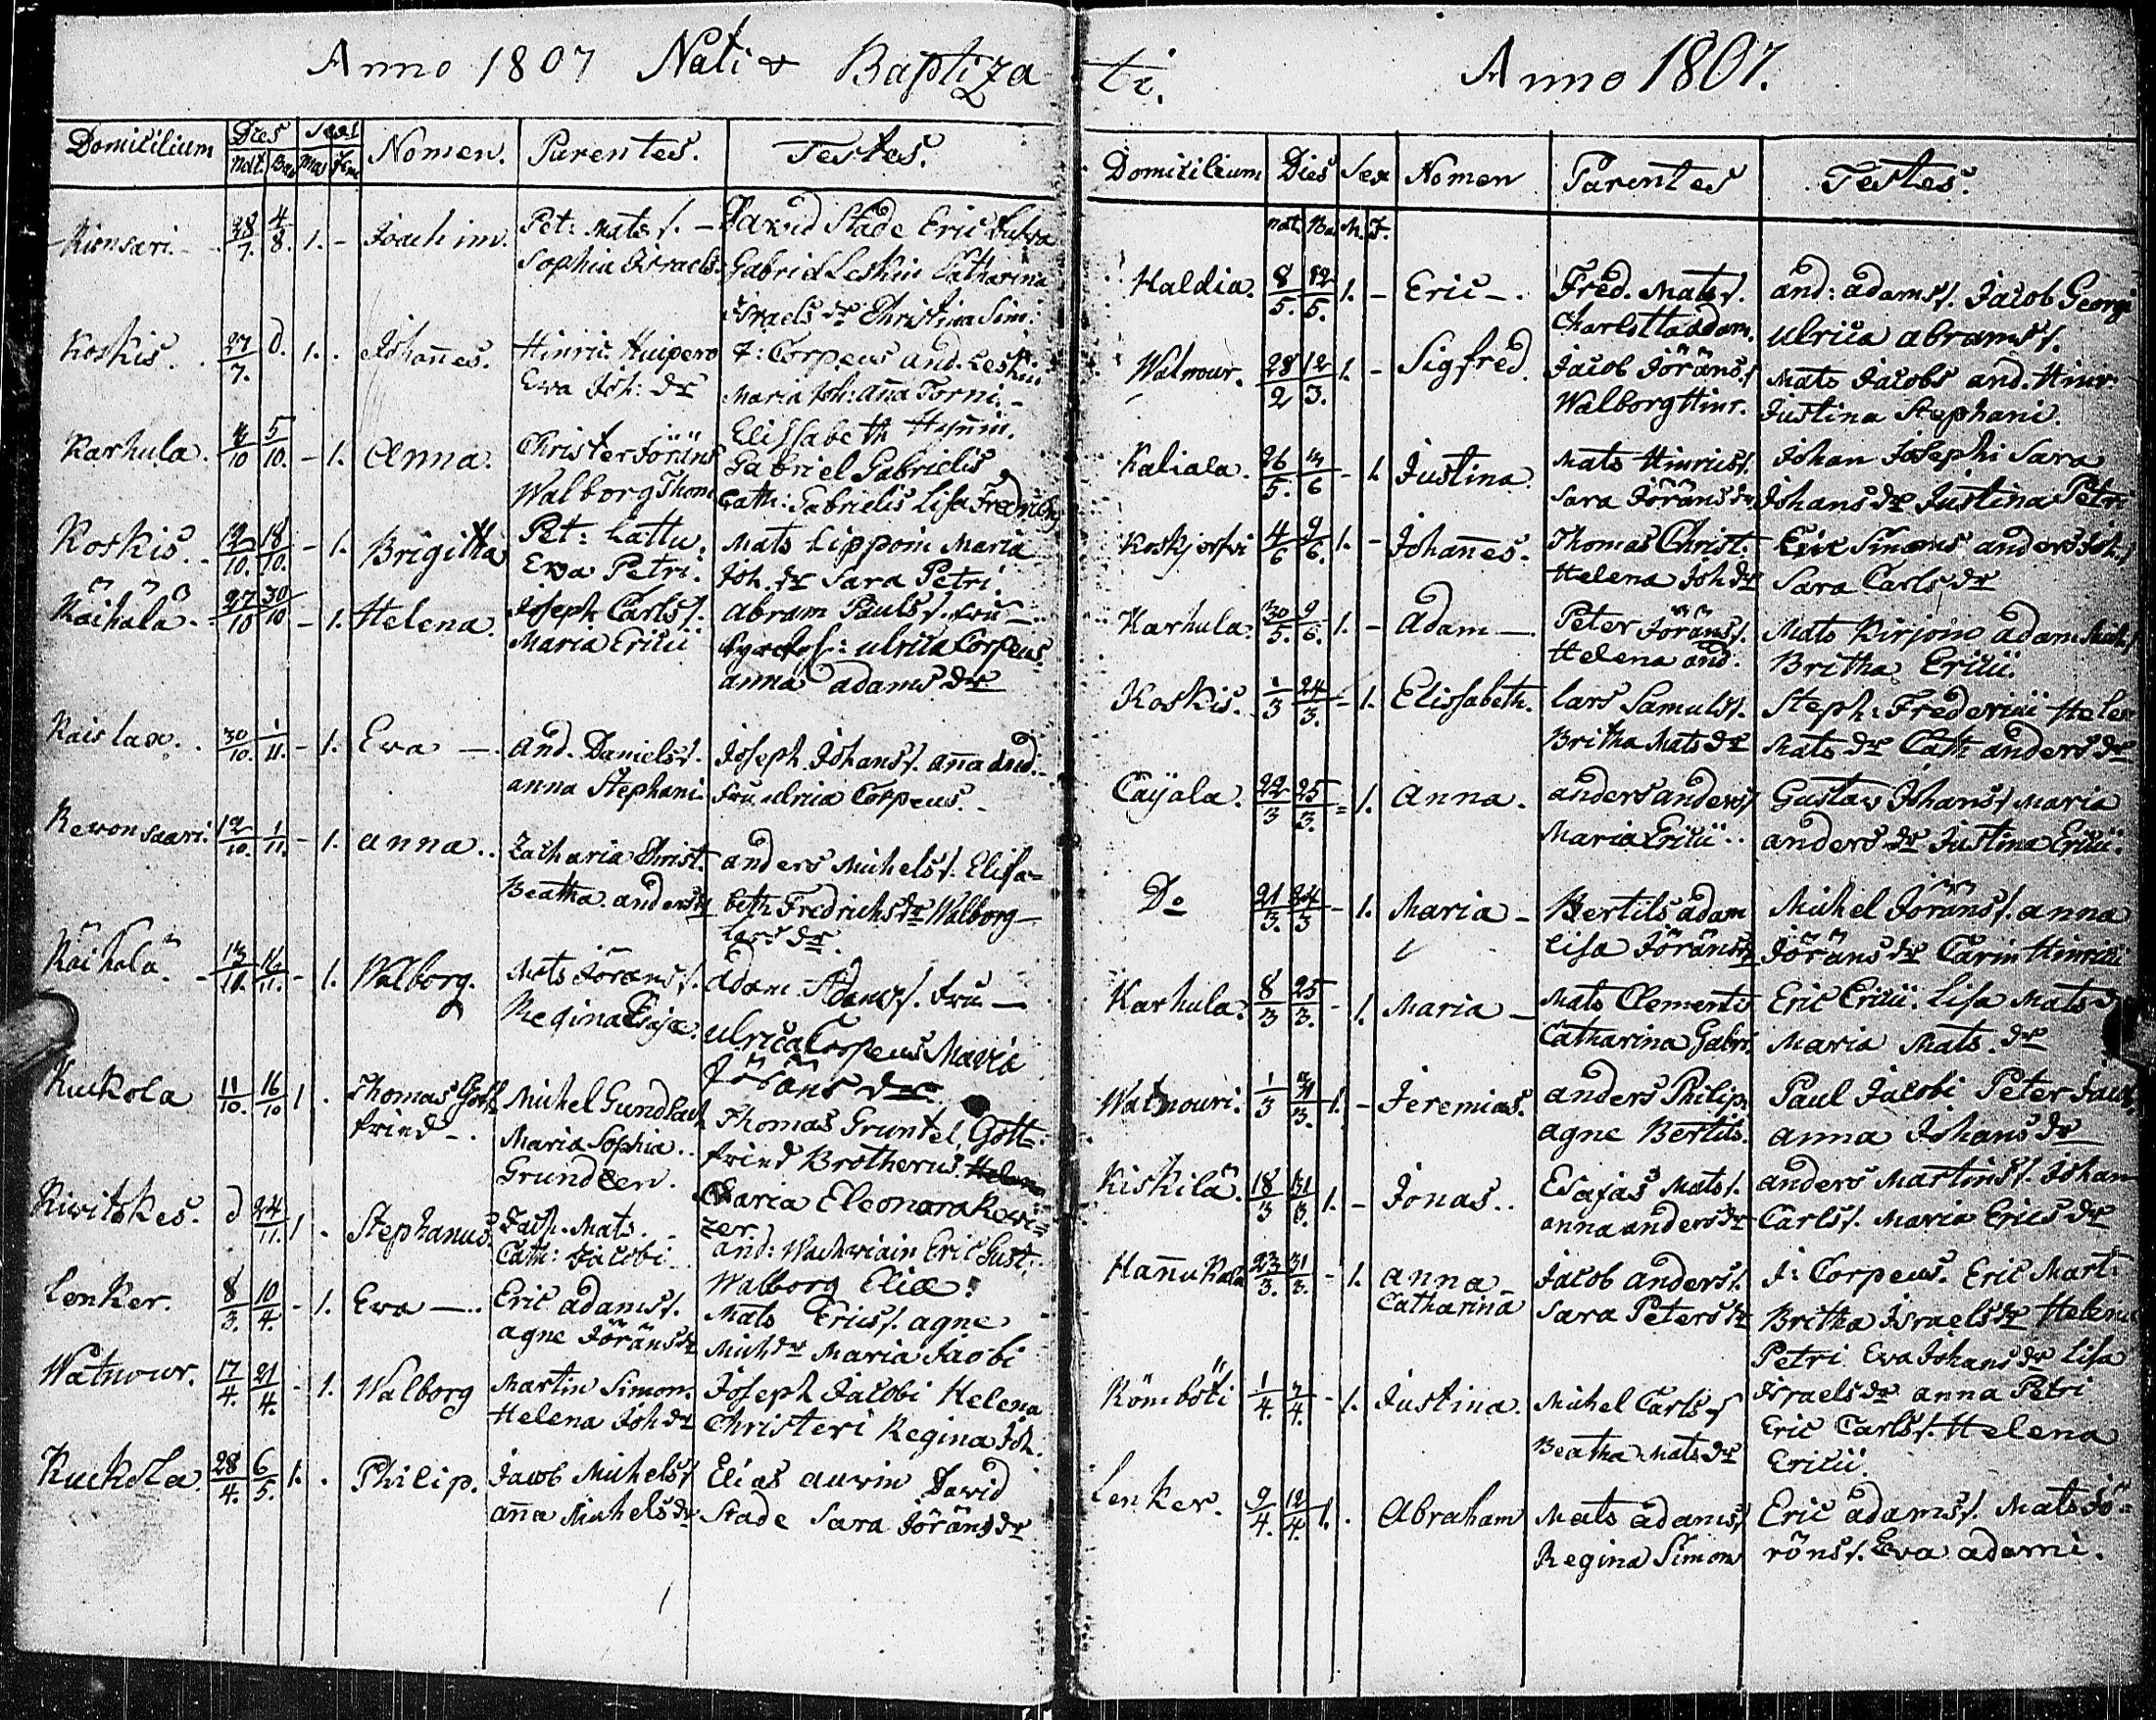 Anno 1807 Nati & Baptiza
Domicilium Dies Sex Nomen. Parentes. Testes.
Nat. Bap Mas Fem
Kionsari. 28/7. 4/8. 1. - Joachim. Pet: Mats s. - David Stade Eric
Sophia Israels. Gabriel Leskin Catharina
Israels dr Christina Sim:
Koskis. 27/7. D. 1. . Johannes. Hinric. Huipero J: Corpeus and. Leskin
Eva Joh: dr Maria Joh: Anna Torni. -
Elissabeth Hynnin.
Karhula. 4/10 5/10. - 1. Anna. Christer Jöräns Gabriel Gabrielis
Walborg Thom Cath: Gabrielis Lisa
Koskis. 12/10. 18/10. - 1. Brigitta Pet: Lattu. Mats Lippoin Maria
Eva Petri. Joh. dr Sara Petri.
Käihälä. 27/10 30/10 - 1. Helena. Joseph Carls s. Abram Pauls s. fru -
Maria Ericii ulrica Corpeus.
anna adams dr
Kaislax. 30/10. 1/11. - 1. Eva - And. Daniels s. Joseph Johans s. Anna And: -
anna Stephani fru ulrica Corpeus. -
Rewonsaari. 12/10. 1/11. - 1. anna. . Zacharia Christ. anders Michels s. Elisa=
Beatha anders dr beth Fredrichs dr Walborg -
Lars dr.
Käihälä. 13/11. 16/11. - 1. Walborg. Mats Jörans s. Adam Adams s. fru -
Regina Esajæ. Ulrica Corpeus Maria
Jöräns dr
Kuckola 11/10. 16/10 1 . Thomas Gott Michel Gundlach Thomas Gruntel, Gott=
fried -. Maria Sophia. . fried Brotherus. Helena
Grundeen. Maria Eleonora Rewi=
zer.
Kiwitskes. D 24/11. 1 . Stephanus. Zach. Mats. - and: Wachwiain Eric Gust.
Cath: Jacobi Walborg Eliæ:
Lenker. 8/3. 10/4. - 1. Eva -. . Eric adams s. Mats Erics s. agne
agne Jöräns dr Mich dr Maria Jacobi
Watnour. 17/4. 21/4. - 1. Walborg Martin Simon. Joseph Jacobi Helena
Helena Joh dr Christeri Regina Joh.
Kuckola. 28/4. 6/5. 1. . Philip. Jacob Michels s Elias auvin David
anna Michels dr Stade Sara Jöräns dr
ti. Anno 1807.
Domicilium Dies Sex Nomen Parentes Testes.
Nat. Ba. M. F.
Haldia. 8/5. 12/5. 1. - Eric -. Fred. Mats s. And: adams s. Jacob Georgi
Charlotta adam. Ulrica abrams s.
Watnour. 28/2 12/3. 1. - Sigfred. Jacob Jöräns s Mats Jacobs and. Hinr
Walborg Hinr. Justina Stephani.
Kaliala. 26/5. 14/6 - 1. Justina. Mats Hinrics s. Johan Josephi Sara
Sara Jöräns dr Johans dr Justina Petri
Koskjerfvi 4/6 9/6. 1. - Johannes. Thomas Christ. Eric Simons anders Joh. s
Helena Joh dr Sara Carls dr
Karhula. 30/5. 9/6. 1. - Adam -. Peter Jöräns s. Mats Kirjoin Adam
Helena And. Britha Ericii.
Koskis. 1/3 24/3. - 1. Elissabeth. Lars Samuls s. Steph: Fredericii Helen
Britha Mats dr Mats dr Cath anders dr
Cayala. 22/3 25/3. = 1. Anna. anders anders s Gustav Johans s Maria
Maria Ericii. . anders dr Justina Ericii.
Do 21/3. 24/3 - 1. Maria - Bertils Adam Michel Jöräns s. anna
Lisa Jöräns dr Jöräns dr Carin Hinricii
Karhula. 8/3 25/3. - 1. Maria - Mats Clementi Eric Ericii. Lisa Mats
Catharina Gabri. Maria Mats. dr
Watnouri. 1/3 31/3. 1. - Jeremias. anders Philip. Paul Jacobi Peter Jacob.
agne Bertils. anna Johans dr
Kiskilä. 18/3 31/3. 1. - Jonas. . Esajas Mats s. anders Martins s. Johan
anna anders dr Carls s. Maria Erics dr
Hannukala 23/3. 31/3. - 1. anna - Jacob anders s. J: Corpeus. Eric Mart:
Catharina Sara Peters dr Britha Israels dr Helena
Petri Eva Johans dr Lisa
Israels dr anna Petri
Römböti 1/4. 7/4. - 1. Justina. Michel Carls s Eric Carls s. Helena
Beatha Mats dr Ericii.
Lenker. 9/4. 12/4. 1. . Abraham Mats adams s Eric adams s. Mats Jö=
Regina Simon röns s. Eva adami.